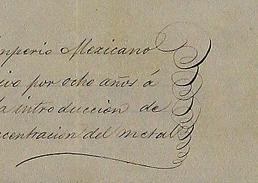 Imperio Mexicano
por ocho años á
la introducción de
centración del metal